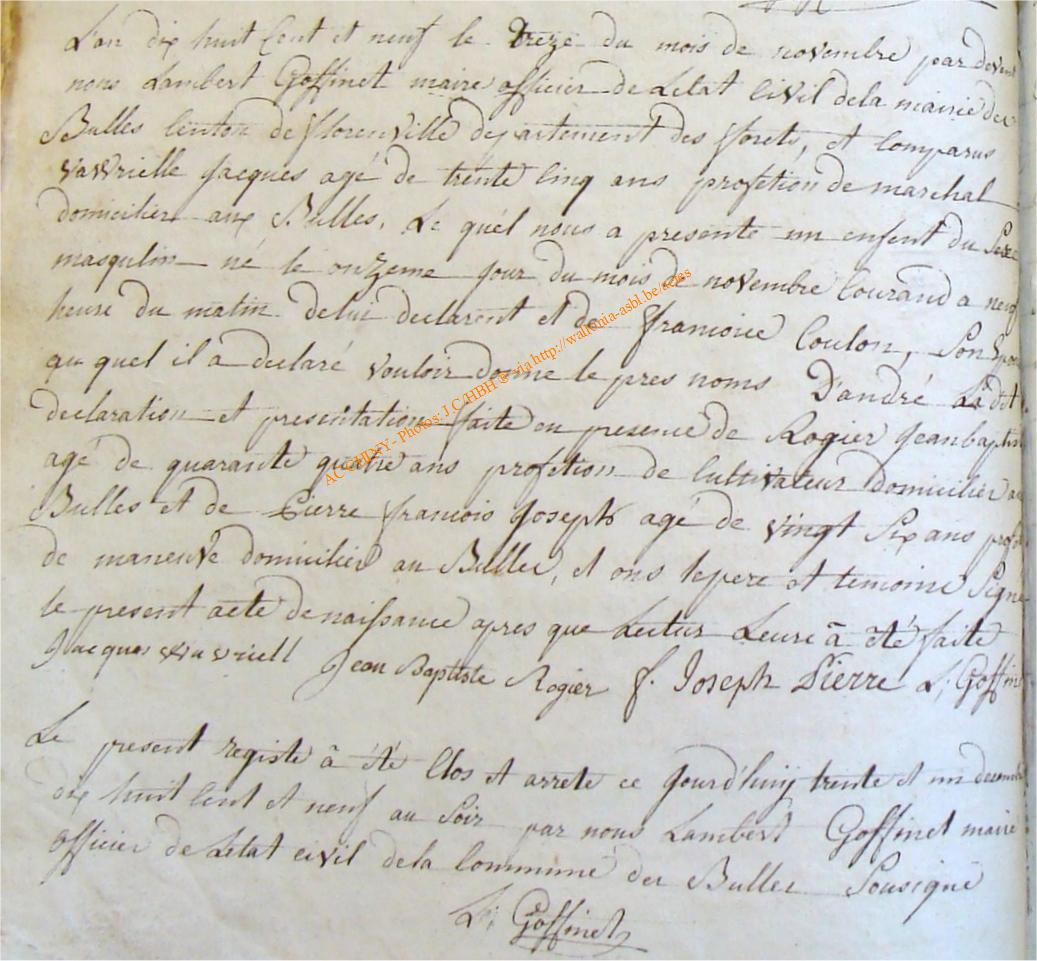 L'an dix huit Cent et neuf le treze du mois de novembre par devent
nous Lambert Goffinet maire officier de Letat Civil dela mairie des
Bulles Canton de florenville departement des forets, et Comparus
Vavvrielle Jacques agé de trente Cinq ans profetion de marchal
domicilier aux Bulles, Le quél nous a presente un enfent du Sexe
masqulin né le onzeme jour du mois de novembre Courand a neuf
heure du matin delui declarent et de francoice Coulon, Son Epou
au quel il a declaré vouloir donne le pres noms D'andré La dit
declaration et presentation faite en presence de Rogier Jean baptis
agé de quarante quatre ans profetion de Cultivateur domicilier au
Bulles et de Pierre francois Joseph agé de vingt Six ans profe
de maneuvé domicilier au Bulles, et ons lepere et temoins Signe
le present acte de naissance apres que Lectur Leure à été faite
Jacques vavriell Jean Baptiste Rogier f. Joseph Pierre L; Goffin
Le present registe à été Clos et arrete ce Jourd'huij trente et un decembr
dix huit Cent et neuf au Soir par nous Lambert Goffinet maire
officier de Letat civil dela Commune des Bulles Sousigné
L; Goffinet
ACCHINY - Photos: J.C/HBH ® via http://wallonia-asbl.be/actes